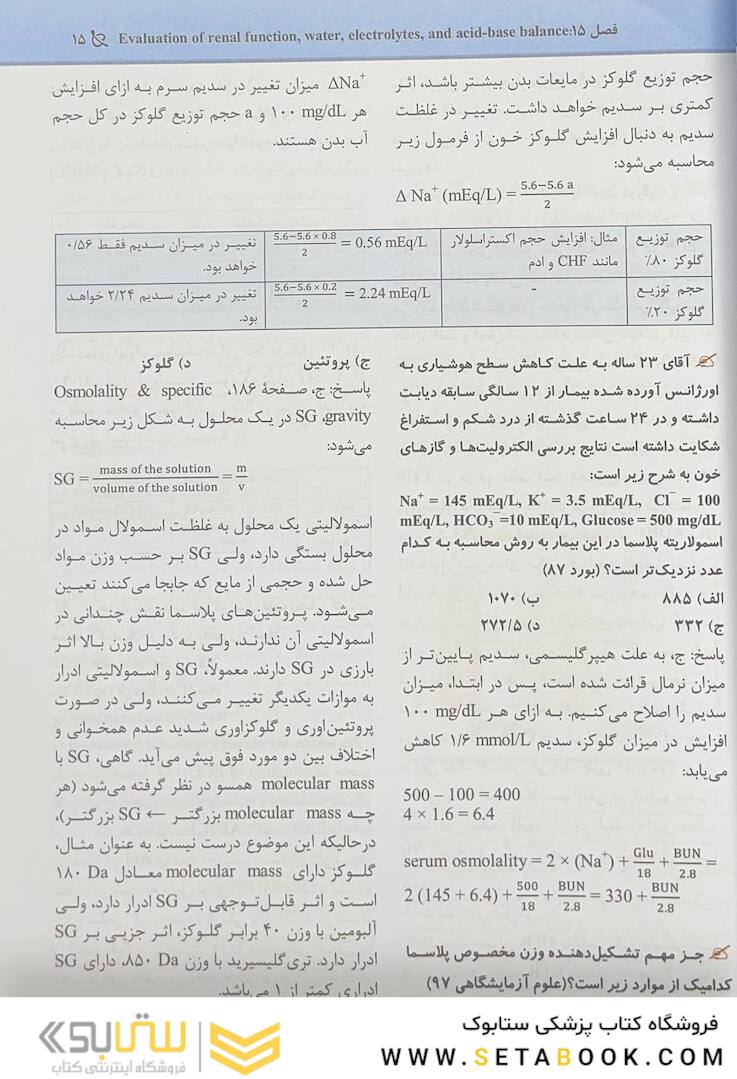 فصل ۱۵:Evaluation of renal function, water, electrolytes, and acid-base balance ۱۵
حجم توزیع گلوکز در مایعات بدن بیشتر باشد، اثر
کمتری بر سدیم خواهد داشت. تغییر در غلظت
سدیم به دنبال افزایش گلوکز خون از فرمول زیر
محاسبه می‌شود:
Δ Na⁺ (mEq/L) = 5.6−5.6 a / 2
ΔNa⁺ میزان تغییر در سدیم سرم به ازای افزایش
هر ۱۰۰ mg/dL و a حجم توزیع گلوکز در کل حجم
آب بدن هستند.
حجم توزیع گلوکز ۸۰٪ | مثال: افزایش حجم اکستراسلولار مانند CHF و ادم | 5.6−5.6 × 0.8 / 2 = 0.56 mEq/L | تغییر در میزان سدیم فقط ۰/۵۶ خواهد بود.
حجم توزیع گلوکز ۲۰٪ | - | 5.6−5.6 × 0.2 / 2 = 2.24 mEq/L | تغییر در میزان سدیم ۲/۲۴ خواهد بود.
آقای ۲۳ ساله به علت کاهش سطح هوشیاری به
اورژانس آورده شده بیمار از ۱۲ سالگی سابقه دیابت
داشته و در ۲۴ ساعت گذشته از درد شکم و استفراغ
شکایت داشته است نتایج بررسی الکترولیت‌ها و گازهای
خون به شرح زیر است:
Na⁺ = 145 mEq/L, K⁺ = 3.5 mEq/L, Cl⁻ = 100
mEq/L, HCO₃⁻=10 mEq/L, Glucose = 500 mg/dL
اسمولاریته پلاسما در این بیمار به روش محاسبه به کدام
عدد نزدیک‌تر است؟ (بورد ۸۷)
الف) ۸۸۵ ب) ۱۰۷۰
ج) ۳۳۲ د) ۲۷۲/۵
پاسخ: ج، به علت هیپرگلیسمی، سدیم پایین‌تر از
میزان نرمال قرائت شده است، پس در ابتدا، میزان
سدیم را اصلاح می‌کنیم. به ازای هر ۱۰۰ mg/dL
افزایش در میزان گلوکز، سدیم ۱/۶ mmol/L کاهش
می‌یابد:
500 – 100 = 400
4 × 1.6 = 6.4
serum osmolality = 2 × (Na⁺) + Glu/18 + BUN/2.8 =
2 (145 + 6.4) + 500/18 + BUN/2.8 = 330 + BUN/2.8
جز مهم تشکیل‌دهنده وزن مخصوص پلاسما
کدامیک از موارد زیر است؟(علوم آزمایشگاهی ۹۷)
ج) پروتئین د) گلوکز
پاسخ: ج، صفحهٔ ۱۸۶، Osmolality & specific
gravity، SG در یک محلول به شکل زیر محاسبه
می‌شود:
SG = mass of the solution / volume of the solution = m/v
اسمولالیتی یک محلول به غلظت اسمولال مواد در
محلول بستگی دارد، ولی SG بر حسب وزن مواد
حل شده و حجمی از مایع که جابجا می‌کنند تعیین
می‌شود. پروتئین‌های پلاسما نقش چندانی در
اسمولالیتی آن ندارند، ولی به دلیل وزن بالا اثر
بارزی در SG دارند. معمولاً، SG و اسمولالیتی ادرار
به موازات یکدیگر تغییر می‌کنند، ولی در صورت
پروتئین‌اوری و گلوکزاوری شدید عدم همخوانی و
اختلاف بین دو مورد فوق پیش می‌آید. گاهی، SG با
molecular mass همسو در نظر گرفته می‌شود (هر
چه molecular mass بزرگتر ← SG بزرگتر)،
درحالیکه این موضوع درست نیست. به عنوان مثال،
گلوکز دارای molecular mass معادل ۱۸۰ Da
است و اثر قابل‌توجهی بر SG ادرار دارد، ولی
آلبومین با وزن ۴۰ برابر گلوکز، اثر جزیی بر SG
ادرار دارد. تری‌گلیسیرید با وزن ۸۵۰ Da، دارای SG
ادراری کمتر از ۱ می‌باشد.
فروشگاه کتاب پزشکی ستابوک
WWW.SETABOOK.COM
ستابوک
فروشگاه اینترنتی کتاب